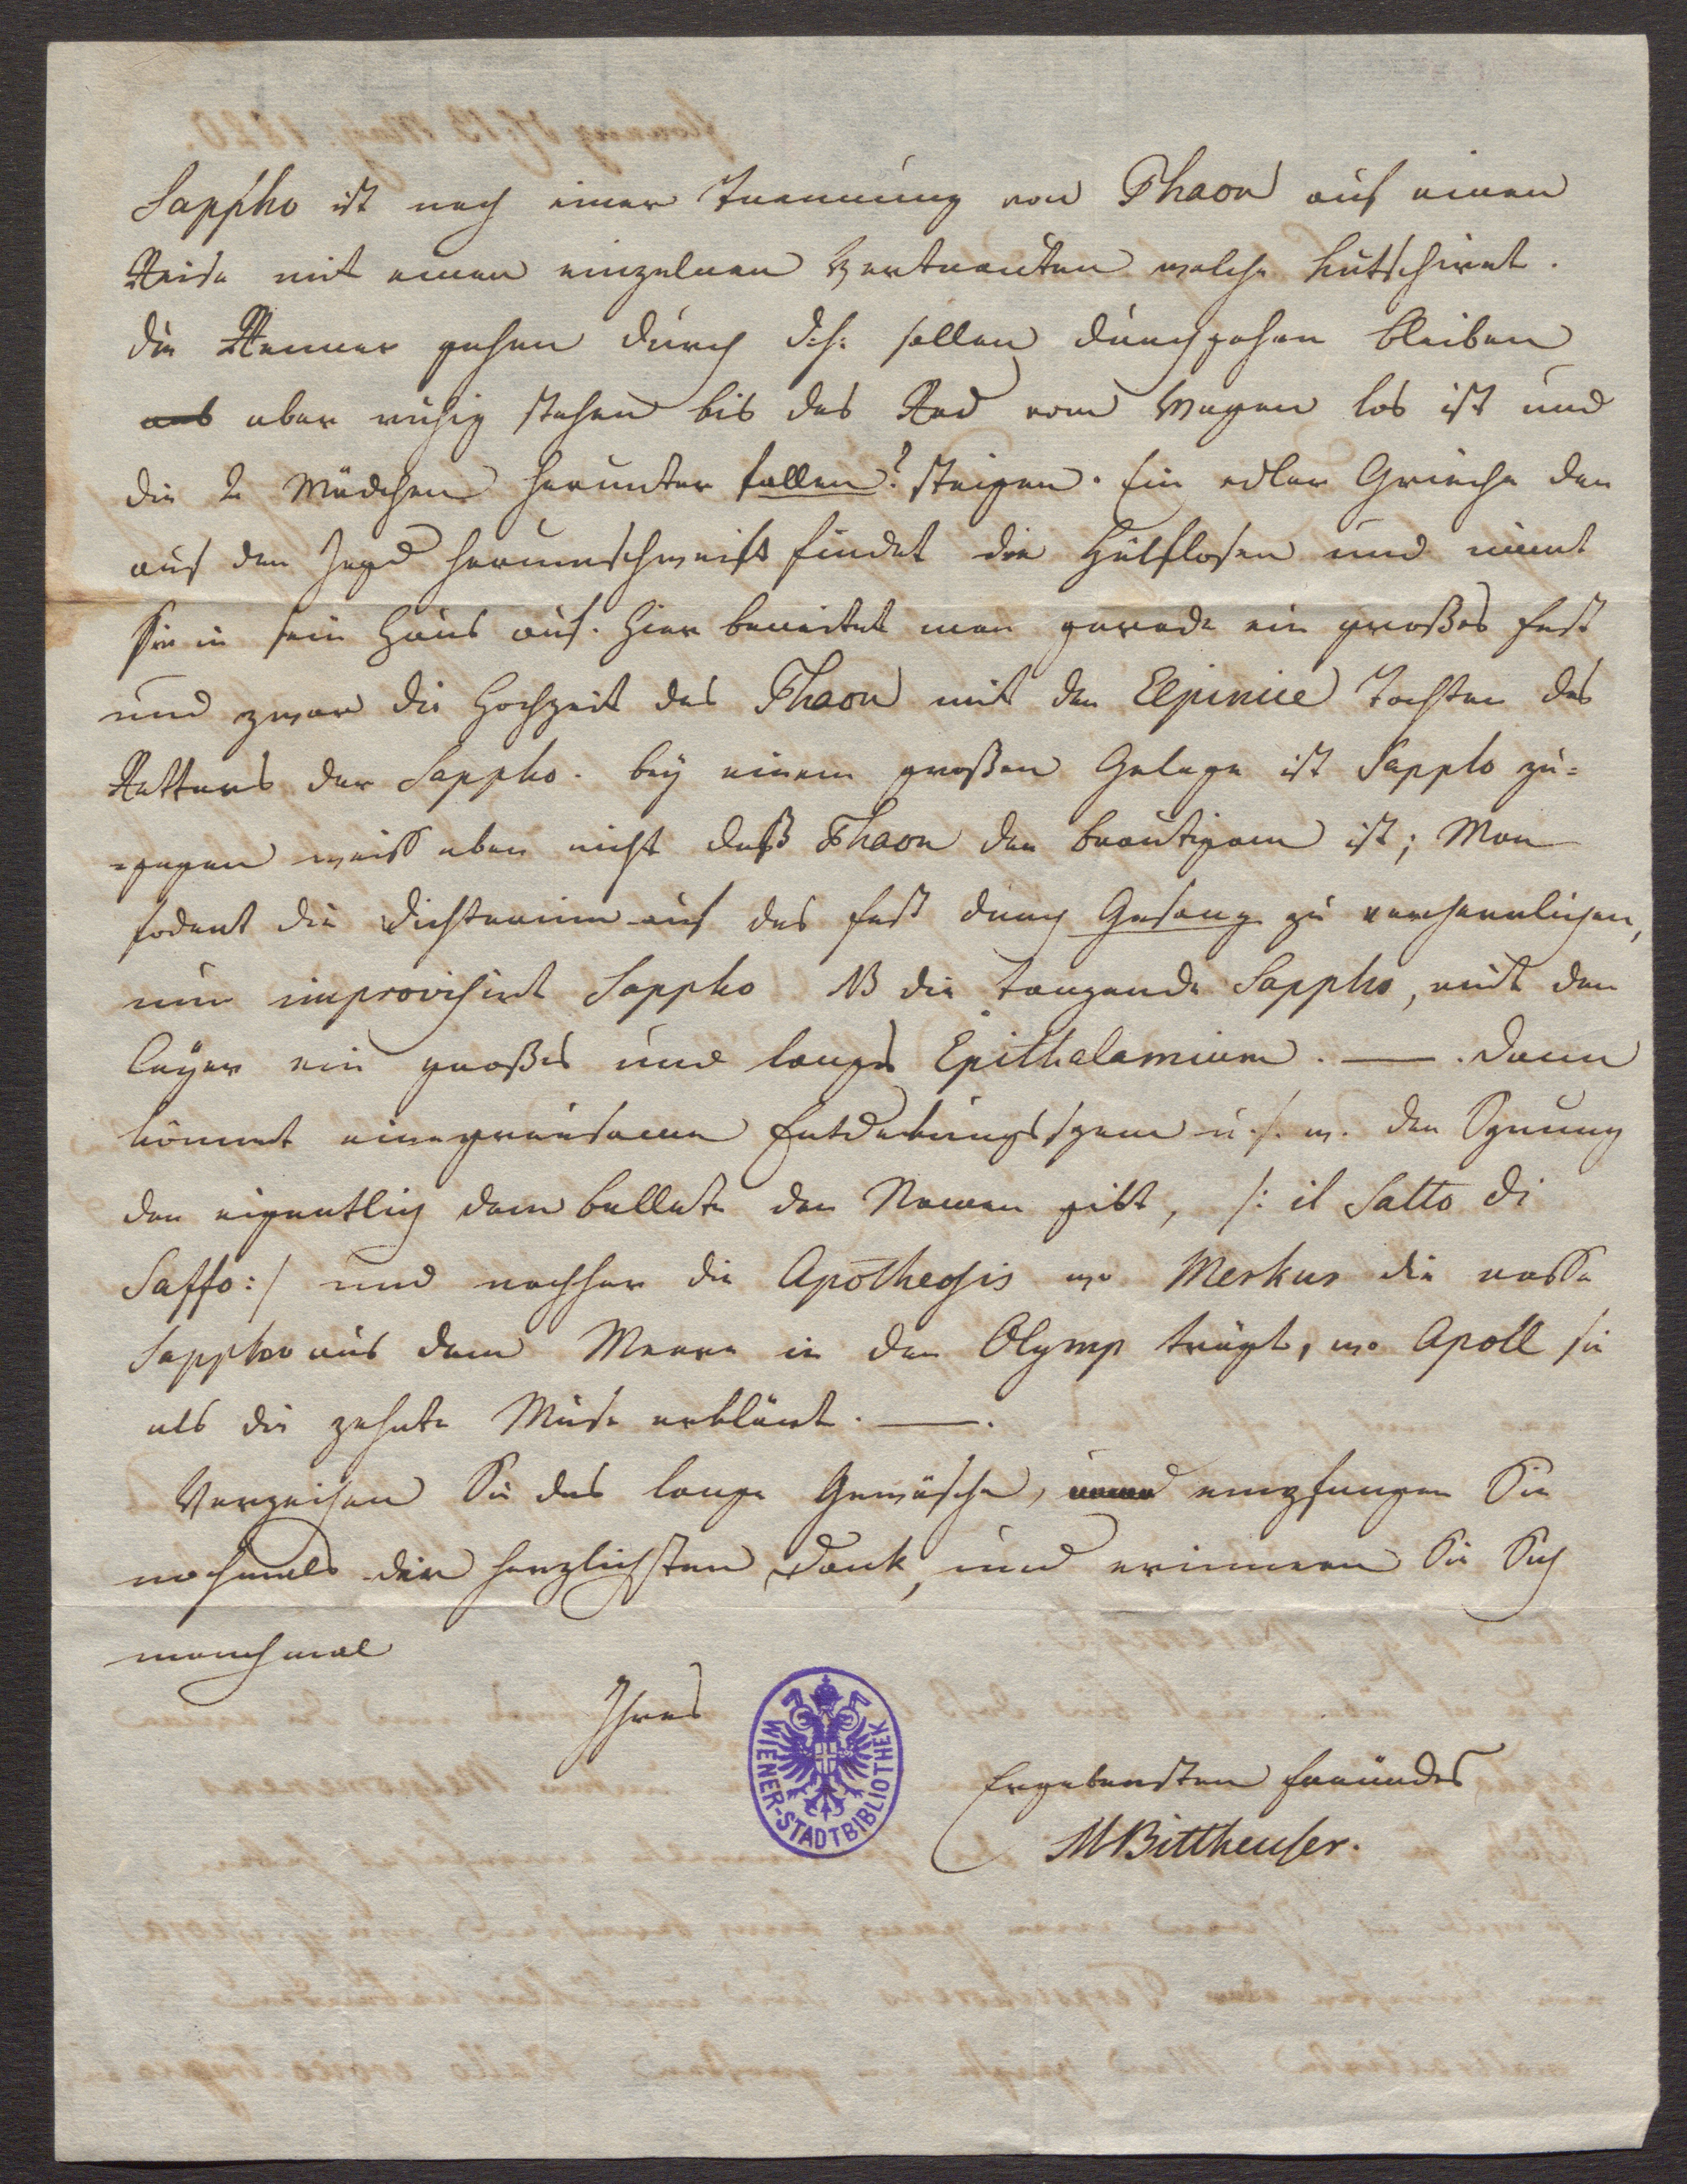 Sappho ist nach einer Trennung von Phaon auf einer
Reise mit einer einzelnen Vertrauten welche kutschirt.
die Renner gehen durch d.h. sollen durchgehen bleiben
aber ruhig stehen bis das Rad vom Wagen los ist und
die 2 Mädchen herunter fallen? steigen. Ein edler Grieche der
auf der Jagd herumschweift findet die Hülflosen und nimt
sie in sein Haus auf. hier bereitet man gerade ein großes Fest
und zwar die Hochzeit des Phaon mit der Elpinice Tochter des
Retters der Sappho. bey einem großen Gelage ist Sappho zu=
=gegen weiß aber nicht daß Phaon der Bräutigam ist; Man
fodert die Dichterinn auf das Fest durch Gesang zu verherrlichen,
nun improvisirt Sappho NB die tanzende Sappho, mit der
Leyer ein großes und langes Epithalamium. —. Dann
kömmt eine grausame Entdekungsszene u.s.w. der Sprung
der eigentlich dem Ballete den Namen gibt, /: il Salto di
Saffo:/ und nachher die Apotheosis wo Merkur die nasse
Sappho aus dem Meere in den Olymp trägt, wo Apoll sie
als die zehnte Muse erklärt. —.
Verzeihen Sie das lange Gewäsche, empfangen Sie
nochmals den herzlichsten Dank, und erinnern Sie Sich
manchmal
Ihres
Ergebensten Freundes
MBittheuser.
WIENER-STADTBIBLIOTHEK